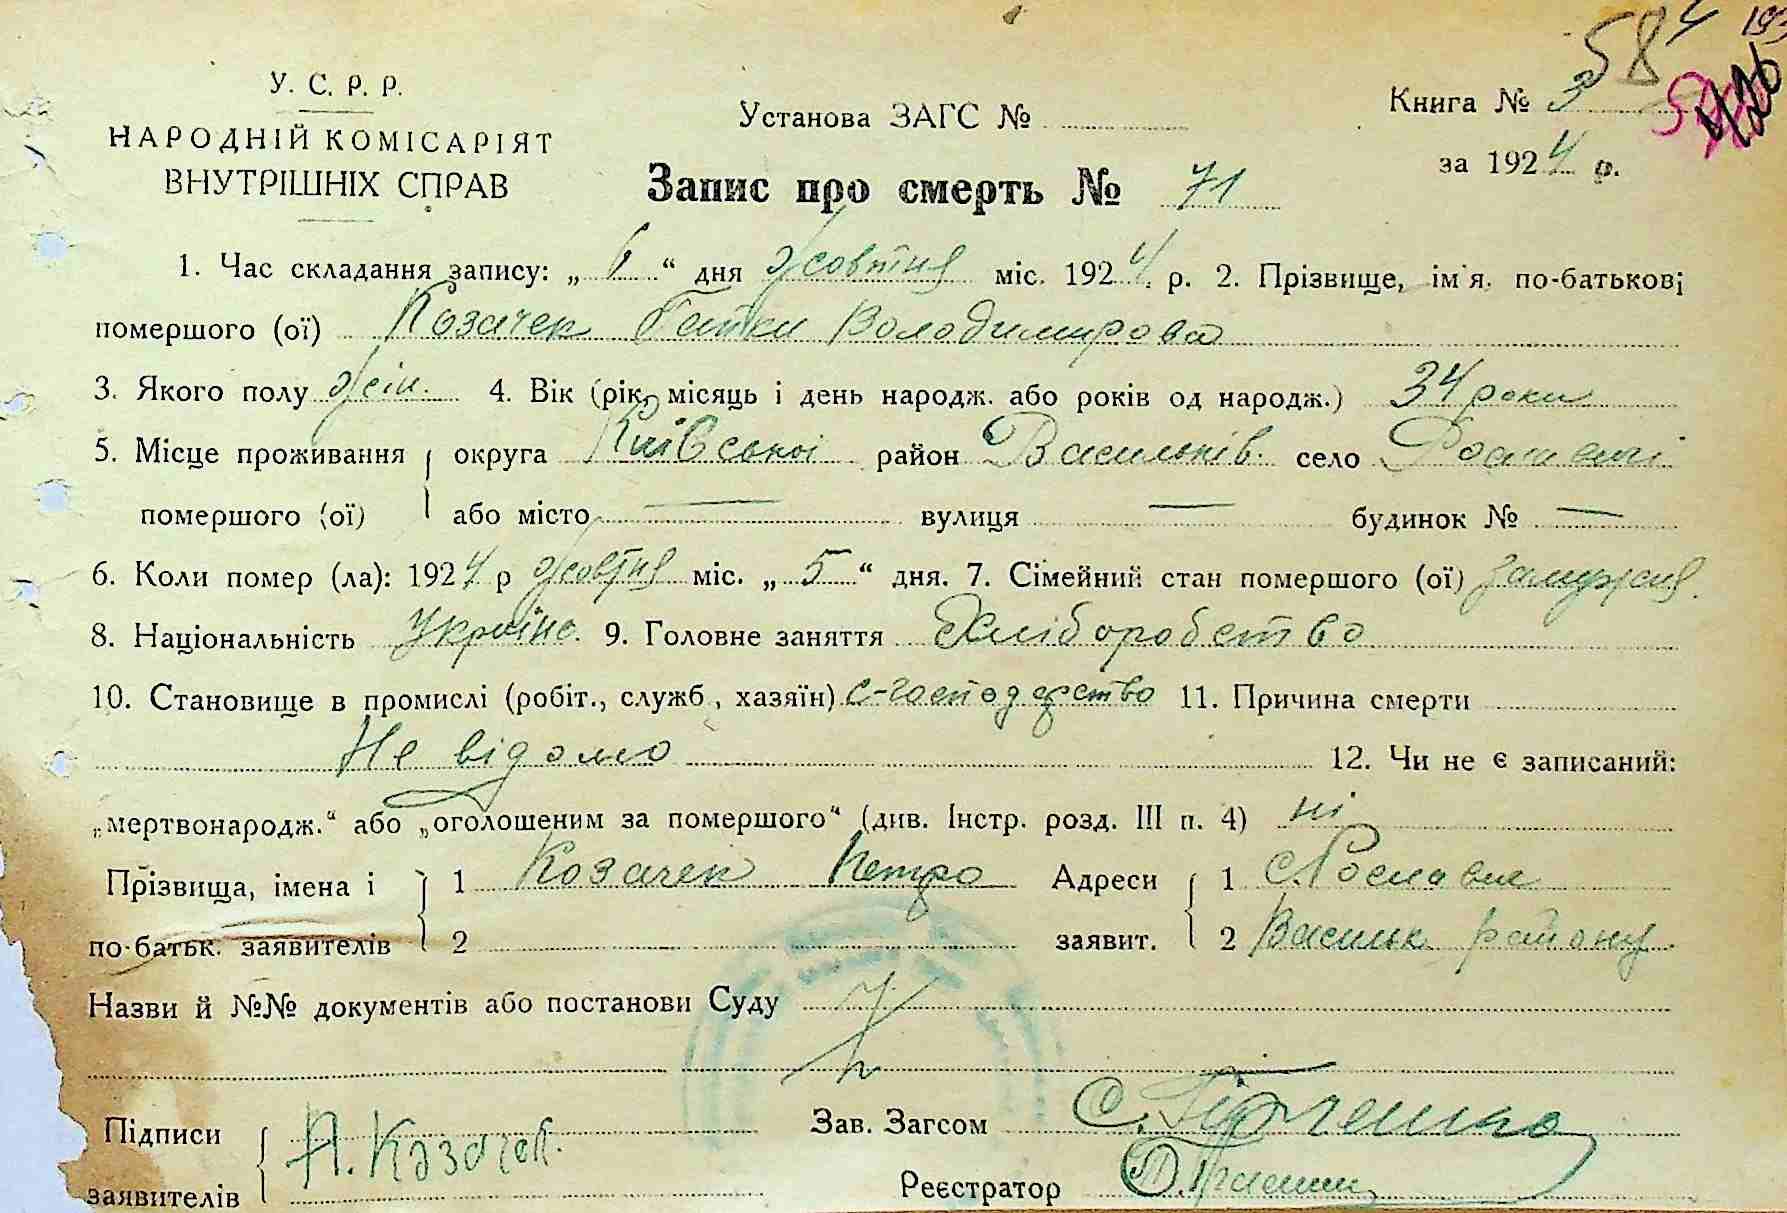 58
У. С. Р. Р.
НАРОДНІЙ КОМІСАРІЯТ
ВНУТРІШНІХ СПРАВ
Установа ЗАГС №
Книга № 3
за 1924 р.
Запис про смерть № 71
1. Час складання запису: „ 6 “ дня жовтня міс. 1924 р. 2. Прізвище, ім'я, по-батькові
помершого (ої) Козачек Володимирова
3. Якого полу жін. 4. Вік (рік, місяць і день народж. або років од народж.) 34 роки
5. Місце проживання округа Київської район Васильків. село
помершого (ої) або місто — вулиця — будинок № —
6. Коли помер (ла): 1924 р жовтня міс. „ 5 “ дня. 7. Сімейний стан помершого (ої) замужня.
8. Національність Україн. 9. Головне заняття Хліборобство
10. Становище в промислі (робіт., служб , хазяїн) с-господарство 11. Причина смерти
Не відомо 12. Чи не є записаний:
„мертвонародж.“ або „оголошеним за помершого“ (див. Інстр. розд. III п. 4) ні
Прізвища, імена і 1 Козачек Петро Адреси 1 с. Рославичі
по-батьк. заявителів 2 заявит. 2 Васильк району
Назви й №№ документів або постанови Суду
Підписи Зав. Загсом С.
заявителів П. Козачек.
Реєстратор